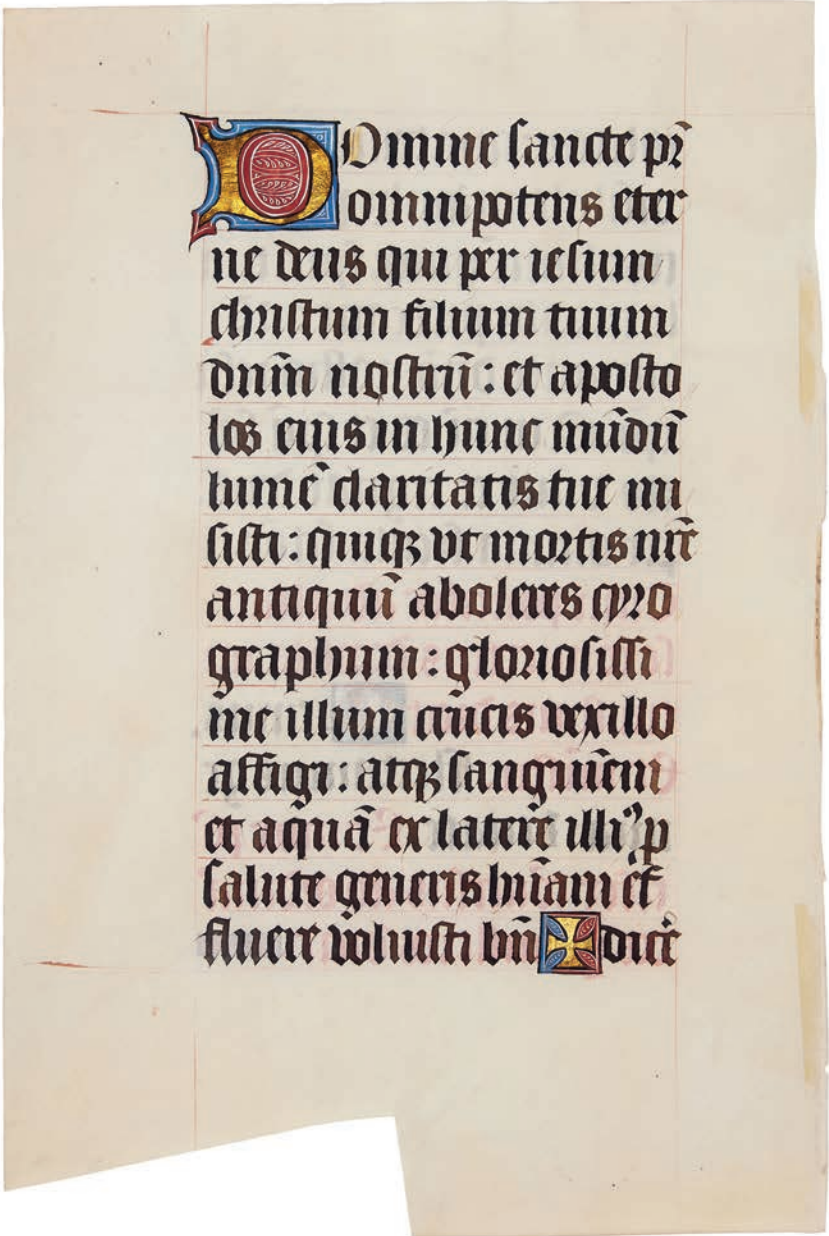 Domine sancte pr̄
omnipotens eter
ne deus qui per iesum
christum filium tuum
dnm̄ nostrū : et aposto
los eius in hunc mūdū
lumē claritatis tue mi
sisti : quiqꝫ vt mortis nr̄e
antiquū aboleres cyro
graphum : gloriosissi
me illum crucis vexillo
affigi : atqꝫ sanguinem
et aquā ex latere illiꝰ p
salute generis hūani ef
fluere voluisti bn̄ ✠ dicē